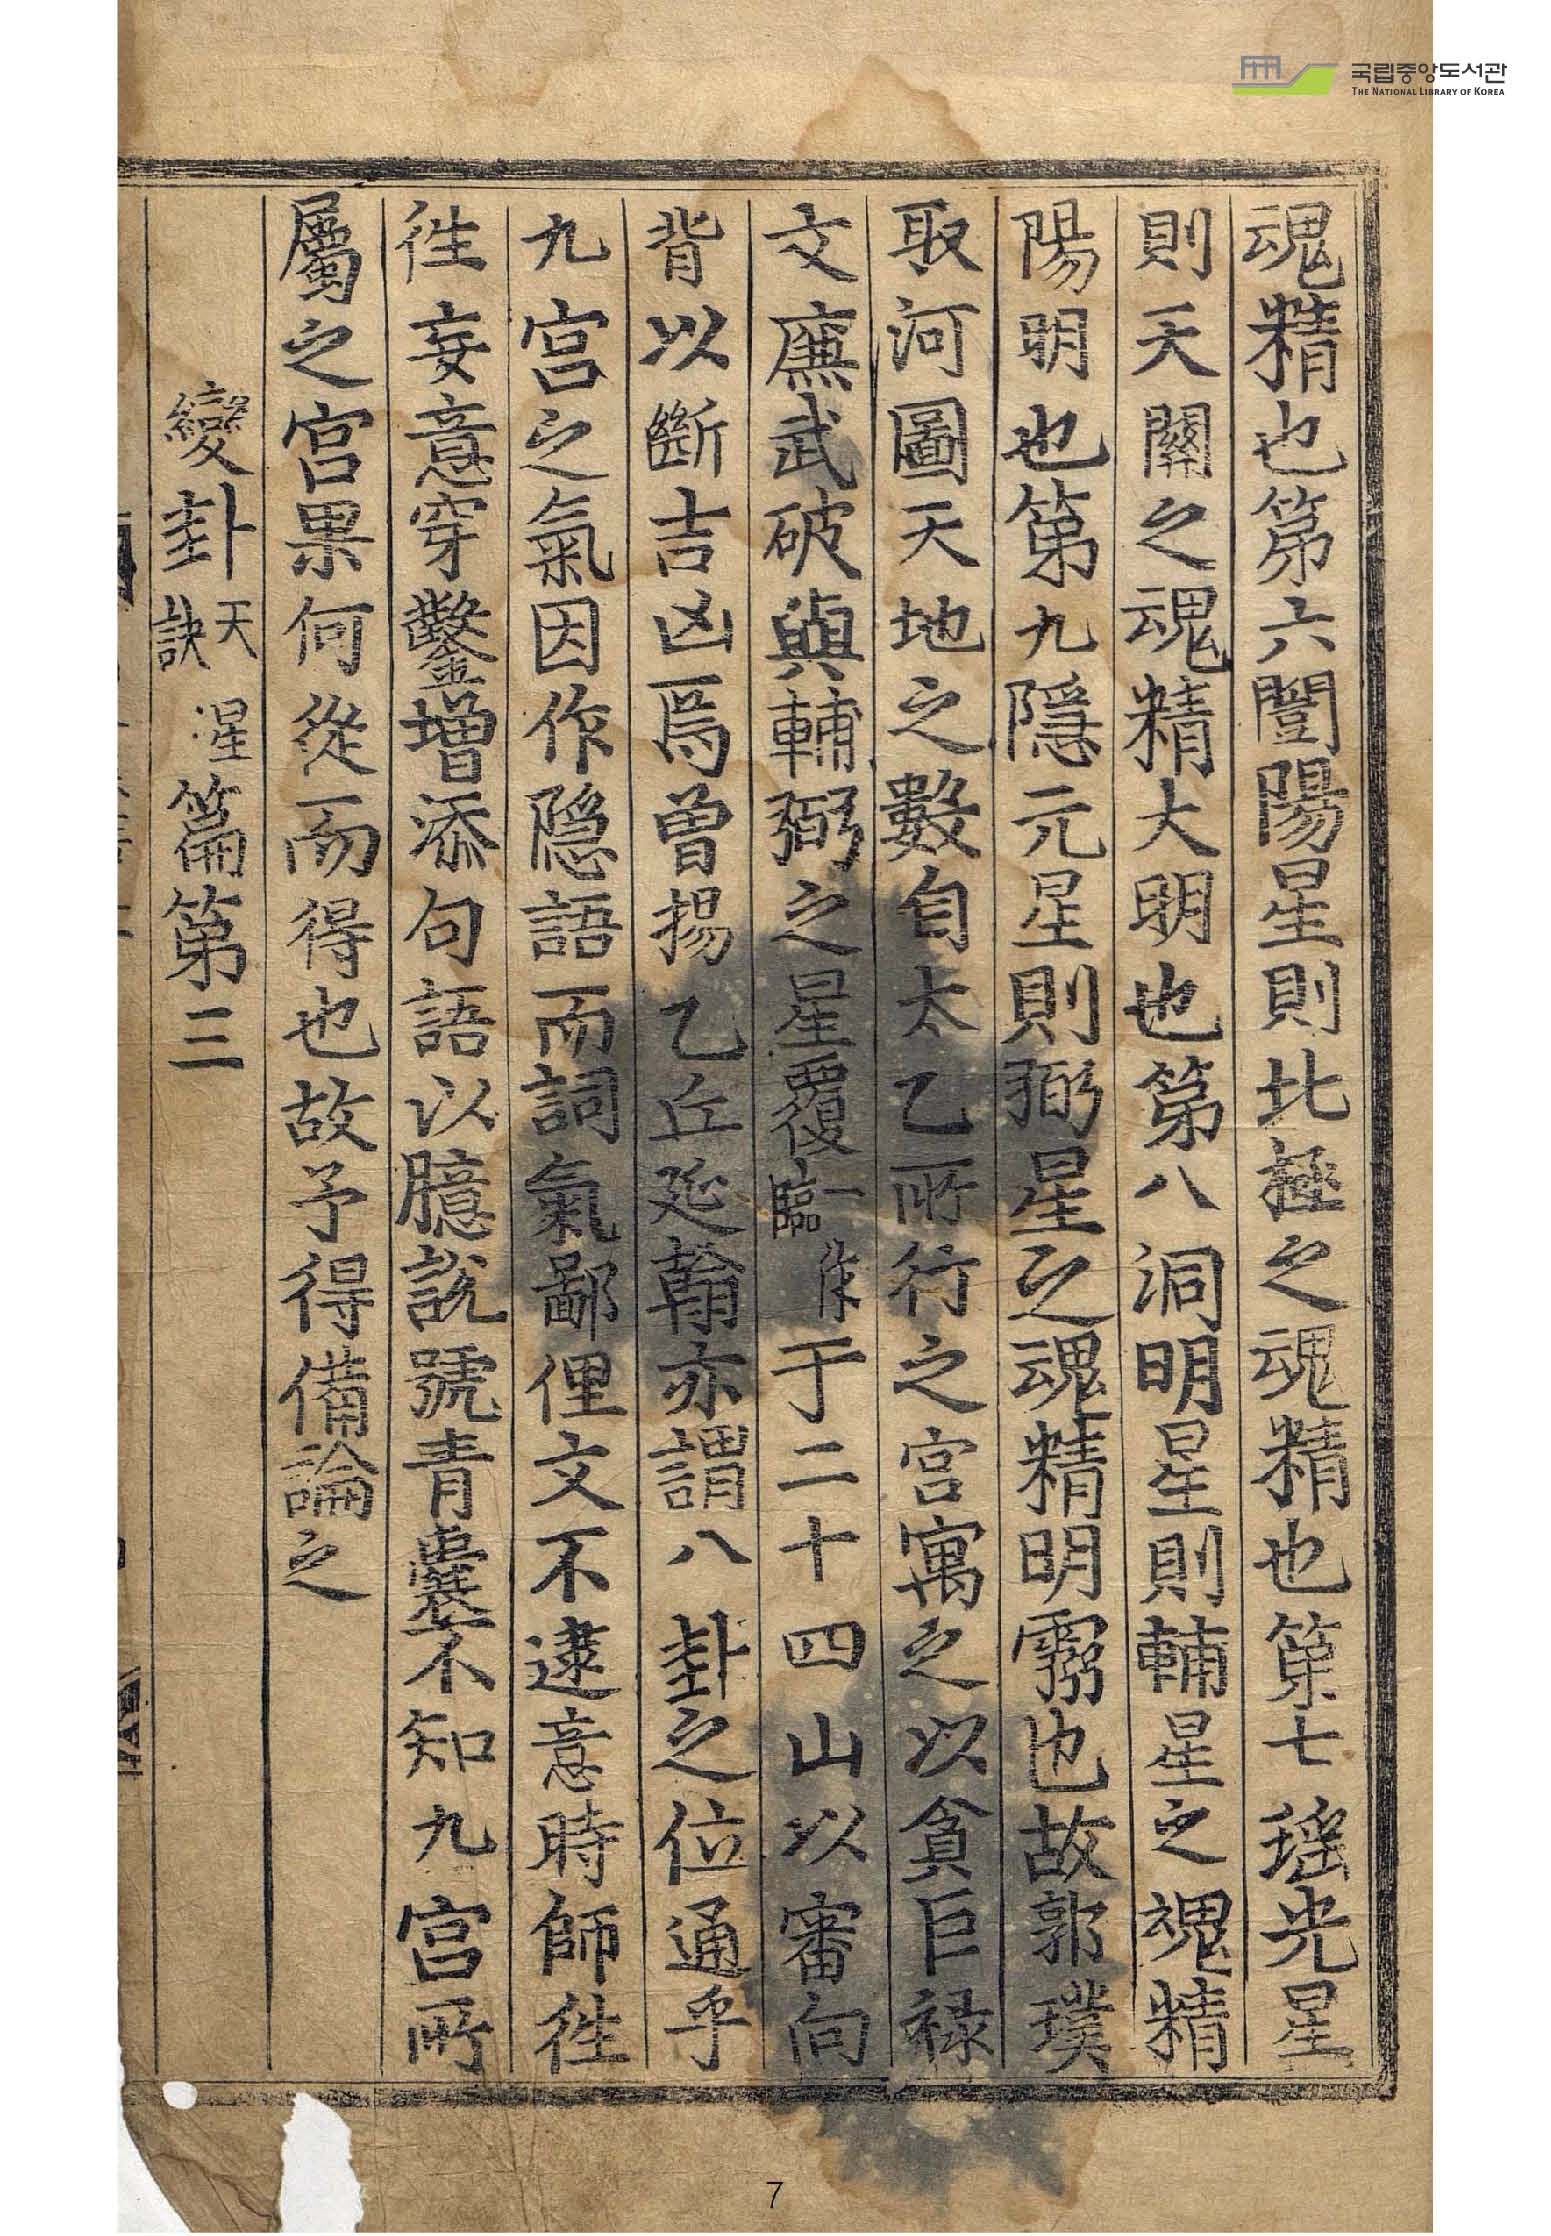 국립중앙도서관
THE NATIONAL LIBRARY OF KOREA
魂精也第六闓陽星則北極之魂精也第七瑤光星
則天關之魂精大明也第八洞明星則輔星之魂精
陽明也第九隱元星則弼星之魂精明霛也故郭璞
取河圖天地之數自太乙所行之宮寓之以貪巨祿
文廉武破與輔弼之星覆一作臨于二十四山以審向
背以斷吉凶焉曾揚乙丘延翰亦謂八卦之位通乎
九宮之氣因作隐語而詞氣鄙俚文不逮意時師徃
徃妄意穿鑿增添句語以臆說號青囊不知九宮所
屬之宮果何從而得也故予得備論之
變卦天星訣篇第三
7